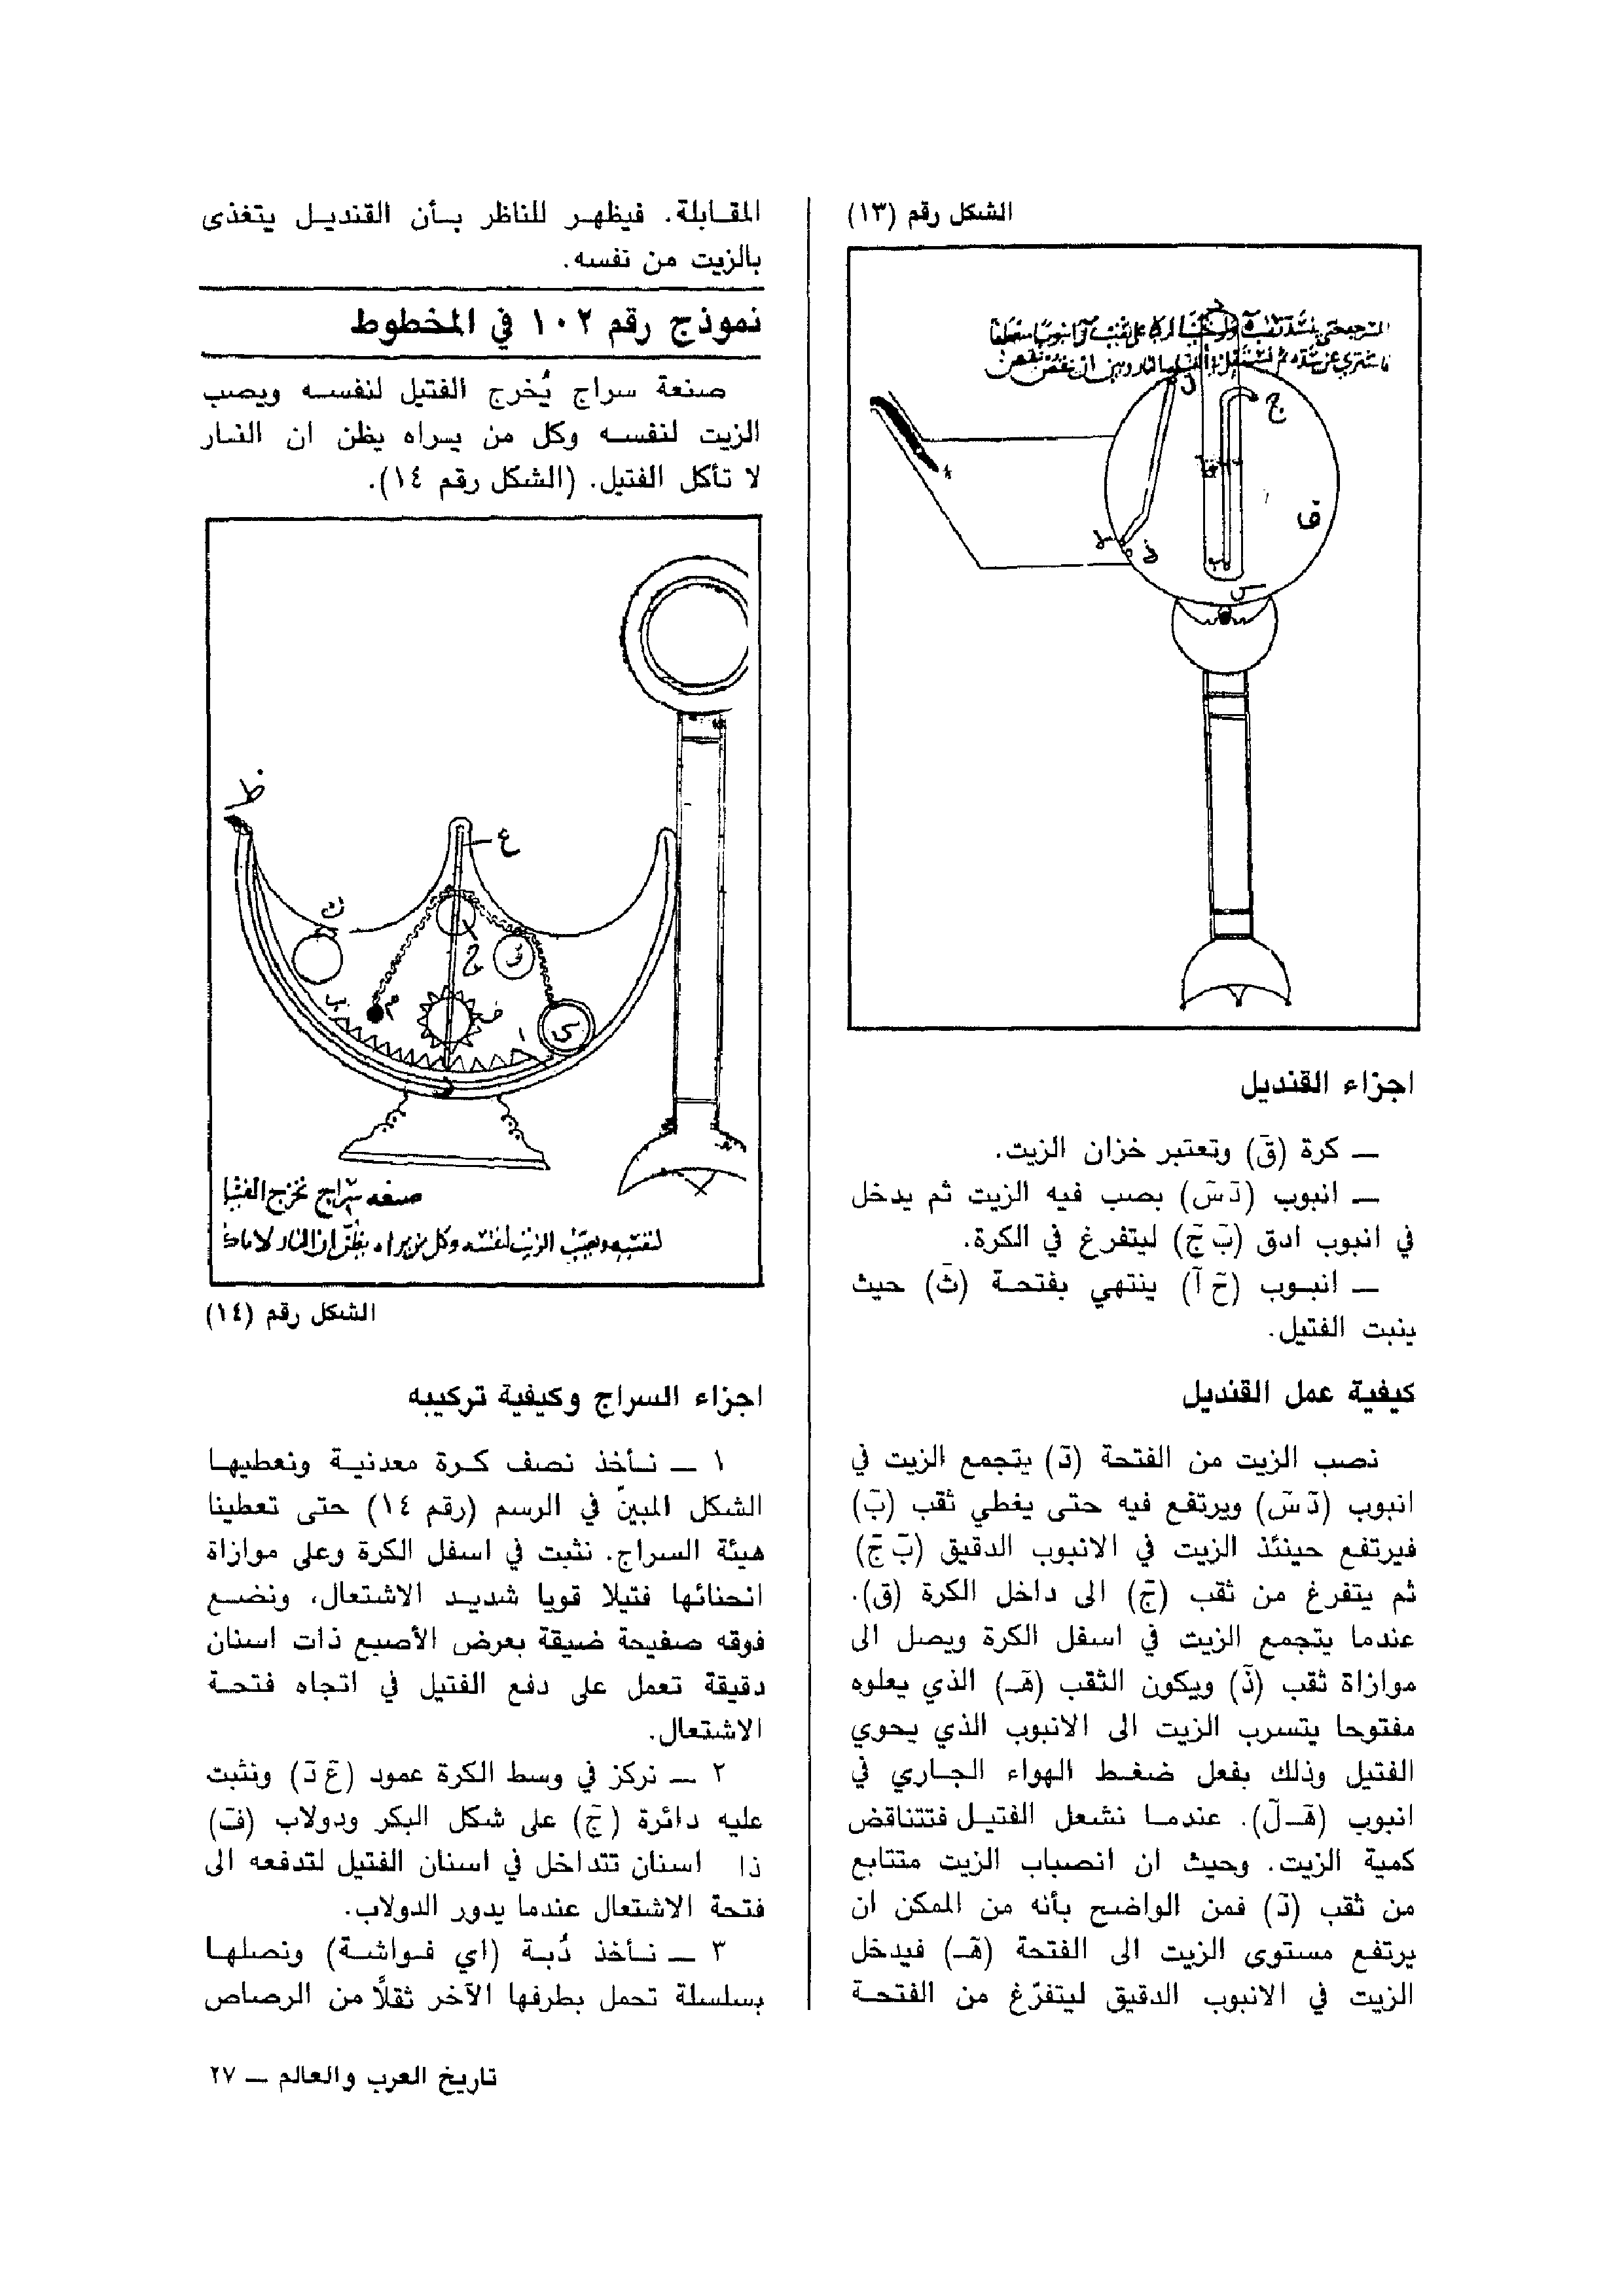 الشكل رقم (١٣)
ج
ق
س
اجزاء القنديل
— كرة (قَ) وتعتبر خزان الزيت.
— انبوب (دَ سَ) بصب فيه الزيت ثم يدخل
في انبوب ادق (بَ جَ) ليتفرغ في الكرة.
— انبـوب (حَ آ) ينتهي بفتحـة (ثَ) حيث
ينبت الفتيل.
كيفية عمل القنديل
نصب الزيت من الفتحة (دَ) يتجمع الزيت في
انبوب (دَ سَ) ويرتفع فيه حتى يغطي ثقب (بَ)
فيرتفع حينئذ الزيت في الانبوب الدقيق (بَ جَ)
ثم يتفرغ من ثقب (جَ) الى داخل الكرة (ق).
عندما يتجمع الزيت في اسفل الكرة ويصل الى
موازاة ثقب (ذَ) ويكون الثقب (هَـ) الذي يعلوه
مفتوحا يتسرب الزيت الى الانبوب الذي يحوي
الفتيل وذلك بفعل ضغط الهواء الجـاري في
انبوب (هَـ لَ). عندمـا نشعل الفتيـل فتتناقض
كمية الزيت. وحيث ان انصباب الزيت متتابع
من ثقب (دَ) فمن الواضح بأنه من الممكن ان
يرتفع مستوى الزيت الى الفتحة (هَـ) فيدخل
الزيت في الانبوب الدقيق ليتفرّغ من الفتحـة
المقـابلة. فيظهـر للناظر بـأن القنديـل يتغذى
بالزيت من نفسه.
نموذج رقم ١٠٢ في المخطوط
صنعة سراج يُخرج الفتيل لنفسـه ويصب
الزيت لنفسـه وكل من يـراه يظن ان النـار
لا تـأكل الفتيل. (الشكل رقم ١٤).
ظ
ع
ج
ى
صنعه سراج تخرج الفتيل
الشكل رقم (١٤)
اجزاء السراج وكيفية تركيبه
١ — نـأخذ نصف كـرة معدنيـة ونعطيهـا
الشكل المبينّ في الرسم (رقم ١٤) حتى تعطينا
هيئة السراج. نثبت في اسفل الكرة وعلى موازاة
انحنائها فتيلا قويا شديـد الاشتعال، ونضـع
فوقه صفيحة ضيقة بعرض الأصبع ذات اسنان
دقيقة تعمل على دفع الفتيل في اتجاه فتحـة
الاشتعال.
٢ — نركز في وسط الكرة عمود (عَ دَ) ونثبت
عليه دائرة (جَ) على شكل البكر ودولاب (فَ)
ذا اسنان تتداخل في اسنان الفتيل لتدفعه الى
فتحة الاشتعال عندما يدور الدولاب.
٣ — نـأخذ دُبـة (اي فـواشـة) ونصلهـا
بسلسلة تحمل بطرفها الآخر ثقلًا من الرصاص
تاريخ العرب والعالم — ٢٧